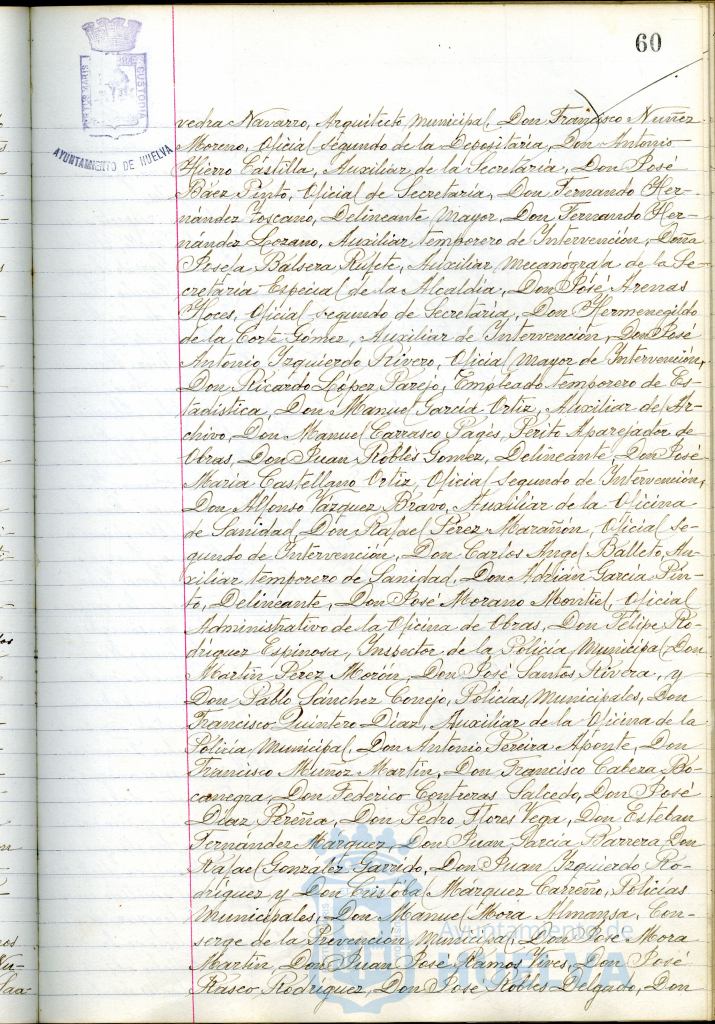 60
PORTUS MARIS
CUSTODIA
AYUNTAMIENTO DE HUELVA
vedra Navarro, Arquitecto municipal, Don Francisco Nuñez
Moreno, Oficial segundo de la Depositaria, Don Antonio
Hierro Castilla, Auxiliar de la Secretaría, Don José
Báez Pinto, Oficial de Secretaría, Don Fernando Her-
nández Toscano, Delineante Mayor, Don Fernando Her-
nández Lozano, Auxiliar temporero de Intervención, Doña
Josefa Bálsera Rufete, Auxiliar Mecanógrafa de la Se-
cretaría Especial de la Alcaldía, Don José Arenas
Hoces, Oficial segundo de Secretaría, Don Hermenegildo
de la Corte Gómez, Auxiliar de Intervención, Don José
Antonio Izquierdo Rivero, Oficial Mayor de Intervención,
Don Ricardo López Parejo, Empleado temporero de Es-
tadística, Don Manuel García Ortiz, Auxiliar del Ar-
chivo, Don Manuel Carrasco Pagés, Perito Aparejador de
Obras, Don Juan Robles Gómez, Delineante, Don José
María Castellano Ortiz, Oficial segundo de Intervención,
Don Alfonso Vázquez Bravo, Auxiliar de la Oficina
de Sanidad, Don Rafael Pérez Marañón, Oficial se-
gundo de Intervención, Don Carlos Angel Balleto, Au-
xiliar temporero de Sanidad, Don Adrián García Pin-
to, Delineante, Don José Morano Montiel, Oficial
Administrativo de la Oficina de Obras, Don Felipe Ro-
dríguez Espinosa, Inspector de la Policía Municipal, Don
Martín Pérez Morón, Don José Santos Rivera, y
Don Pablo Sánchez Conejo, Policías Municipales, Don
Francisco Quintero Díaz, Auxiliar de la Oficina de la
Policía Municipal, Don Antonio Pereira Aponte, Don
Francisco Muñoz Martín, Don Francisco Cabera Bo-
canegra, Don Federico Contreras Salcedo, Don José
Díaz Pereña, Don Pedro Flores Vega, Don Esteban
Fernández Márquez, Don Juan García Barrera, Don
Rafael González Garrido, Don Juan Izquierdo Ro-
dríguez y Don Cristóbal Márquez Carreño, Policías
Municipales, Don Manuel Mora Almansa, Con-
serge de la Prevención Municipal, Don José Mora
Martín, Don Juan José Ramos Vives, Don José
Rasco Rodríguez, Don José Robles Delgado, Don
Ayuntamiento de
HUELVA